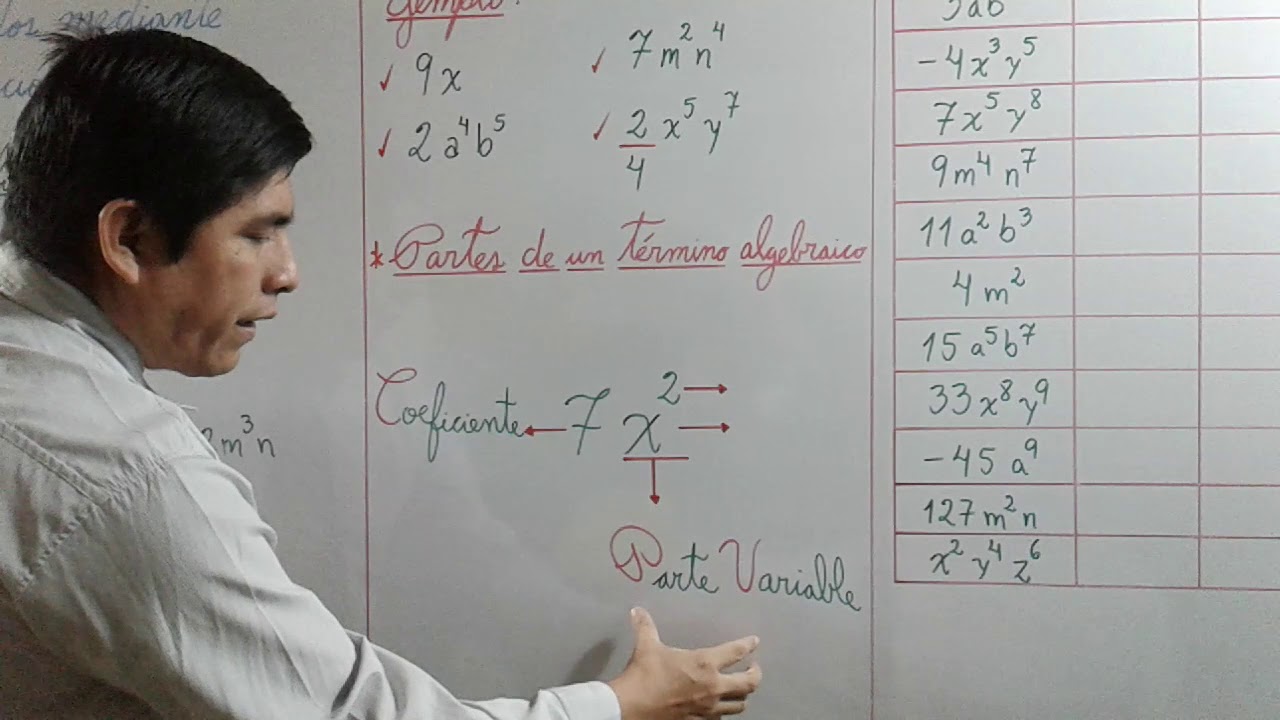 los mediante
m³n
Ejemplo:
✓ 9x
✓ 7m²n⁴
✓ 2a⁴b⁵
✓ 2/4 x⁵y⁷
* Partes de un término algebraico
Coeficiente ← 7x² →
→
↓
Parte Variable
5ab
-4x³y⁵
7x⁵y⁸
9m⁴n⁷
11a²b³
4m²
15a⁵b⁷
33x⁸y⁹
-45a⁹
127m²n
x²y⁴z⁶